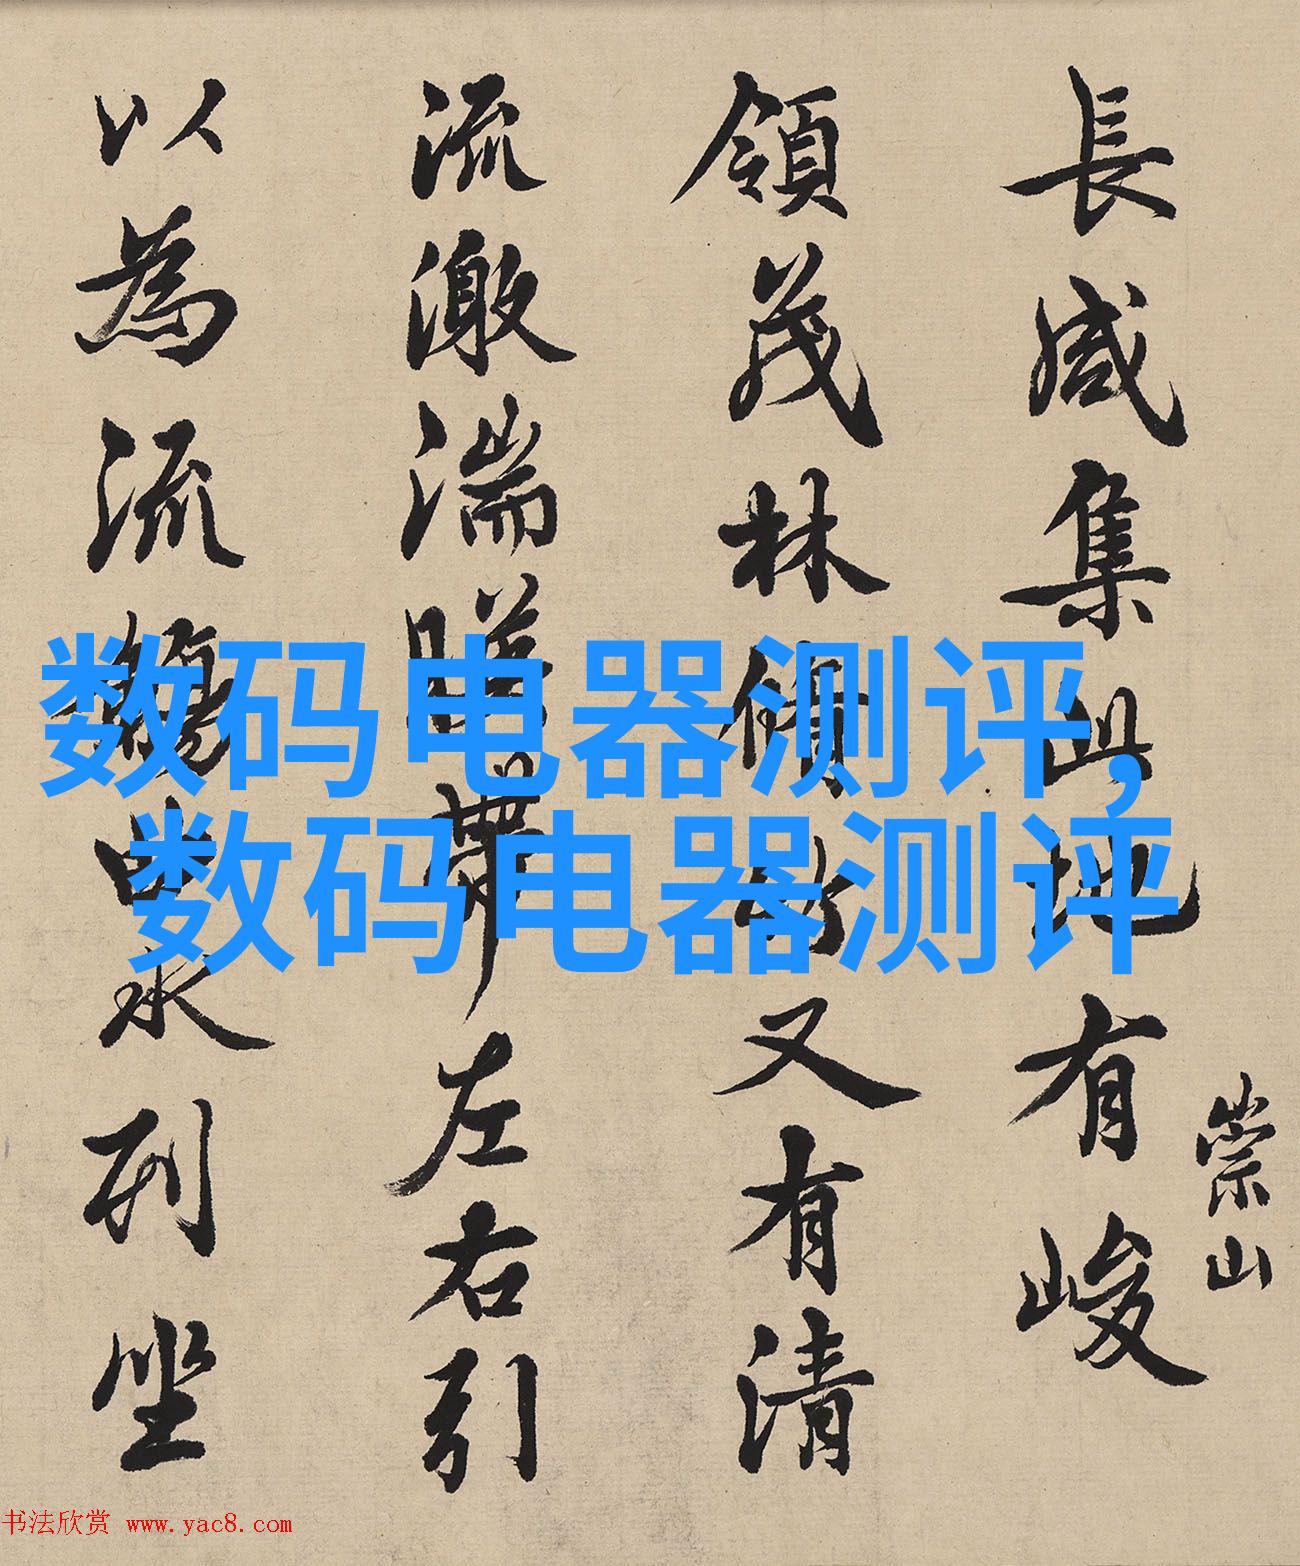 崇山
長咸集此地有峻
領茂林脩竹又有清
流激湍暎帶左右引
以為流觴曲水列坐
数码电器测评,
数码电器测评
书法欣赏 www.yac8.com